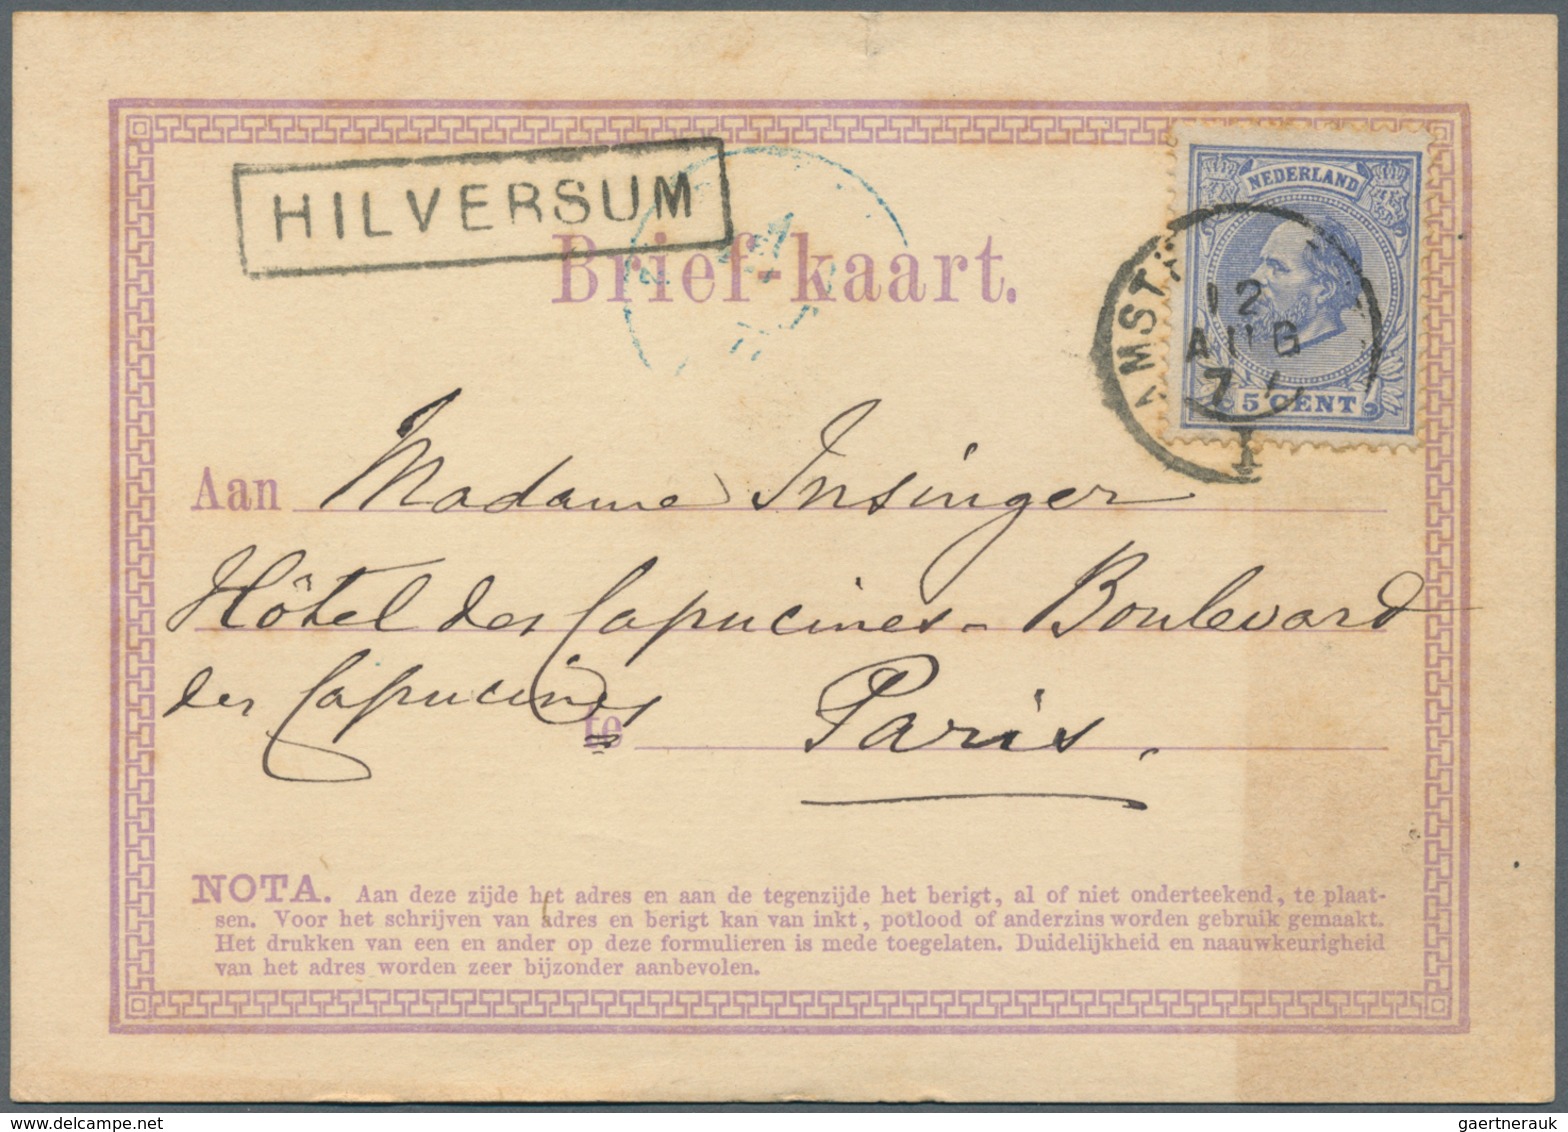 HILVERSUM
NEDERLAND
Brief-kaart.
12
AUG
7
5 CENT
I
Aan Madame Insinger
Hôtel des Capucines - Boulevard
des Capucines
te Paris.
NOTA. Aan deze zijde het adres en aan de tegenzijde het berigt, al of niet onderteekend, te plaat-
sen. Voor het schrijven van adres en berigt kan van inkt, potlood of anderzins worden gebruik gemaakt.
Het drukken van een en ander op deze formulieren is mede toegelaten. Duidelijkheid en naauwkeurigheid
van het adres worden zeer bijzonder aanbevolen.
gaertnerauk @ delcampe.net